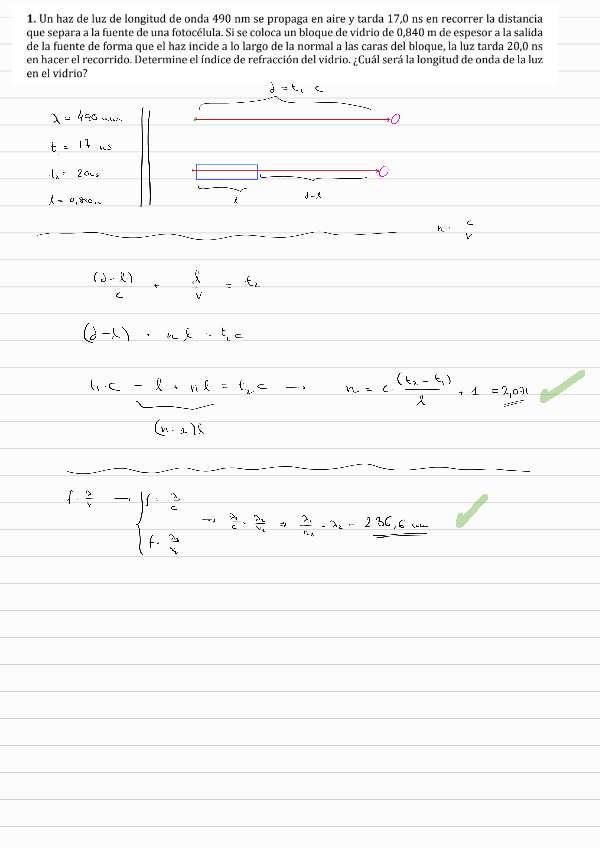 1. Un haz de luz de longitud de onda 490 nm se propaga en aire y tarda 17,0 ns en recorrer la distancia
que separa a la fuente de una fotocélula. Si se coloca un bloque de vidrio de 0,840 m de espesor a la salida
de la fuente de forma que el haz incide a lo largo de la normal a las caras del bloque, la luz tarda 20,0 ns
en hacer el recorrido. Determine el índice de refracción del vidrio. ¿Cuál será la longitud de onda de la luz
en el vidrio?
d = t₁ c
λ = 490 nm
t₁ = 17 ns
t₂ = 20 ns
l = 0,840 m
l
d-l
n = c/v
(d-l)/c + l/v = t₂
(d-l) + n l = t₂ c
t₁ c - l + n l = t₂ c → n = c (t₂ - t₁)/l + 1 = 2,071
(n-1) l
f = λ/v → f = λ₁/c
f = λ₂/v₂
→ λ₁/c = λ₂/v₂ ⇒ λ₁/n₂ = λ₂ = 236,6 nm